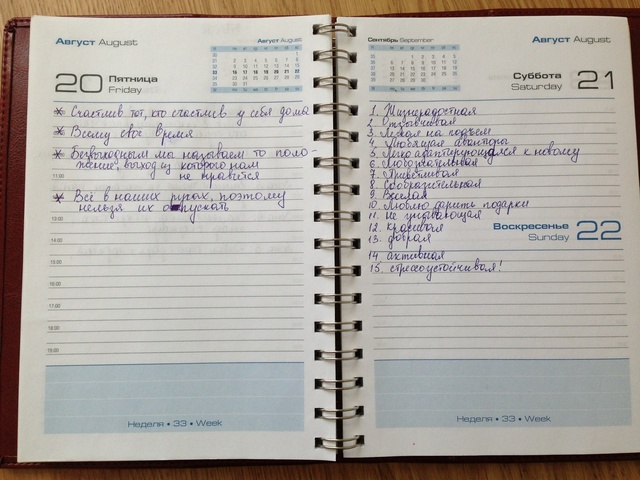 Август August
Август August
20 Пятница
Friday
* Счастлив тот, кто счастлив у себя дома
* Всему своё время
* Безвыходным мы называем то поло-
жение, выход из которого нам
не нравится
* Всё в наших руках, поэтому
нельзя их опускать
11:00
12:00
13:00
14:00
15:00
16:00
17:00
18:00
19:00
Неделя • 33 • Week
Сентябрь September
Август August
Суббота 21
Saturday
1. Жизнерадостная
2. Отзывчивая
3. Лёгкая на подъём
4. Любящая авантюры
5. Легко адаптирующаяся к новому
6. Любознательная
7. Приветливая
8. Соблазнительная
9. Весёлая
10. Люблю дарить подарки
11. не унывающая
12. красивая
13. добрая
14. активная
15. стрессоустойчивая!
Воскресенье 22
Sunday
Неделя • 33 • Week